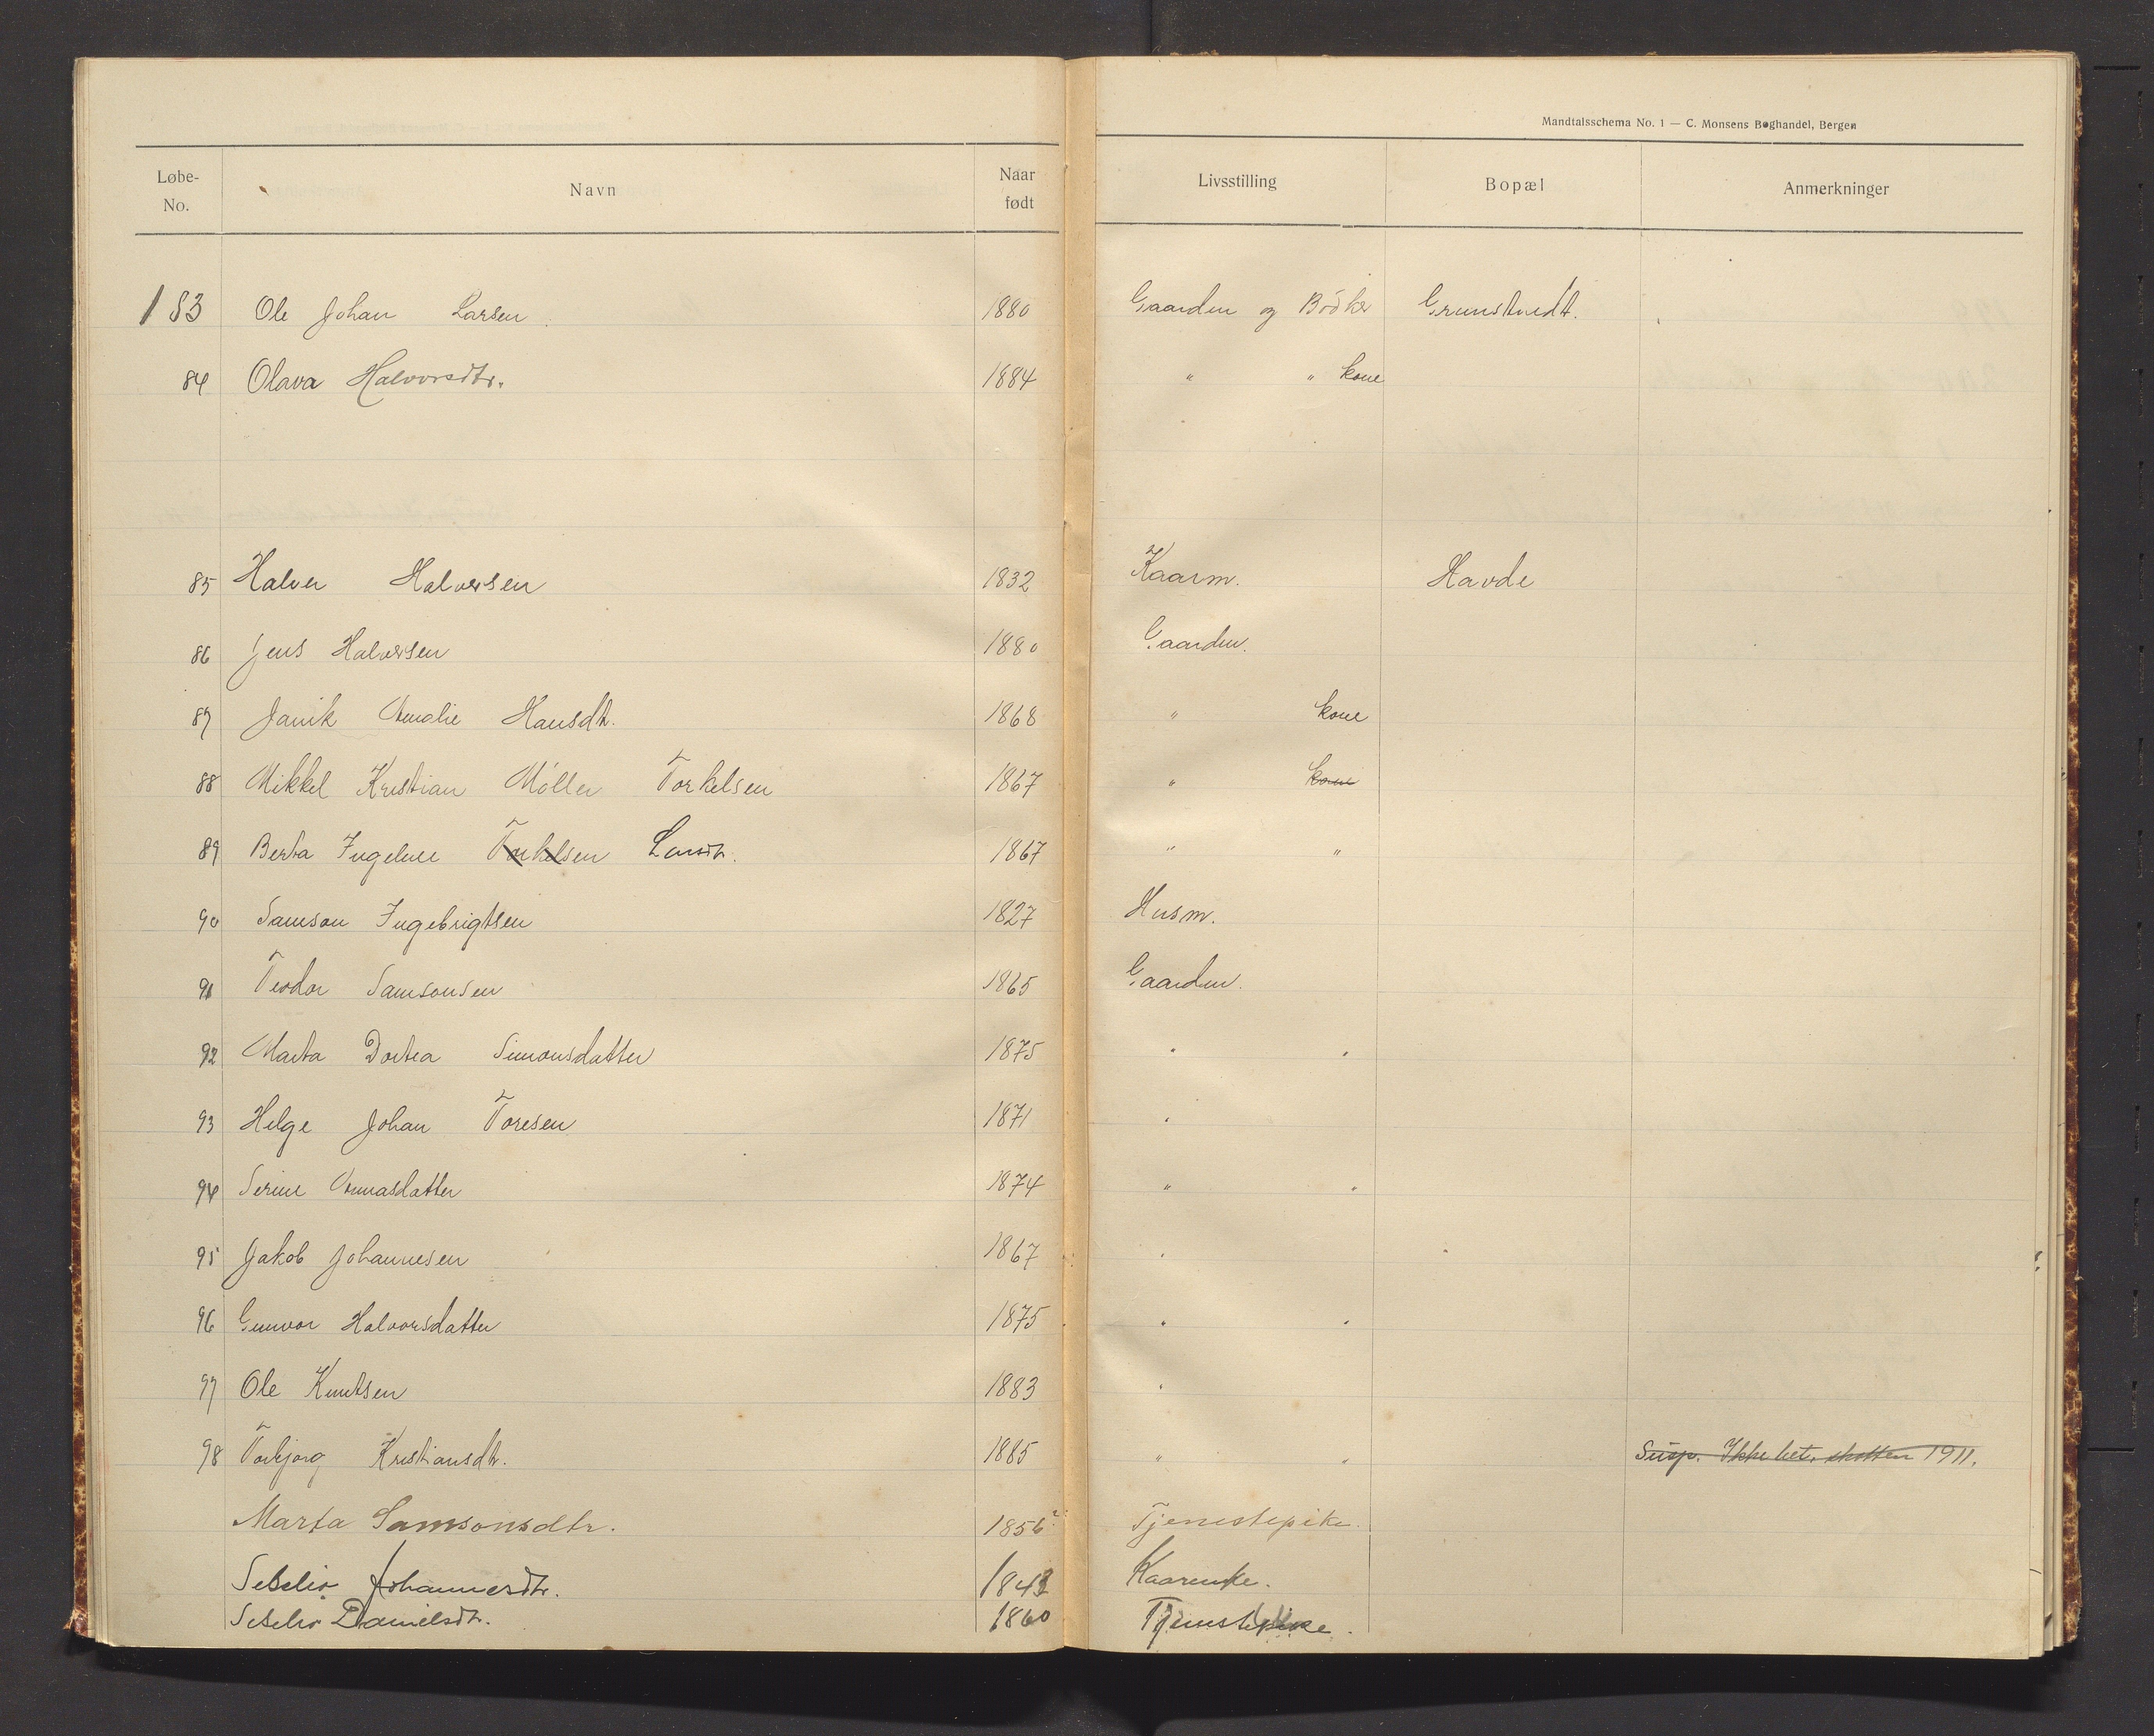 Mandtalsschema No. 1 — C. Monsens Boghandel, Bergen
Løbe-No. Navn Naar født Livsstilling Bopæl Anmerkninger
183 Ole Johan Larsen 1880 Gaardm og Bödker Grunstvedt.
84 Olava Halvorsdtr. 1884 " " kone
85 Halvor Halvorsen 1832 Kaarm. Havde
86 Jens Halvorsen 1880 Gaardm.
87 Janik Amalie Hansdtr. 1868 " kone
88 Mikkel Kristian Möller Torkelsen 1867 " kone
89 Berta Ingeline Torkelsen Larsdtr. 1867 " "
90 Samson Ingebrigtsen 1827 Husm.
91 Teodor Samsonsen 1865 Gaardm.
92 Marta Dortea Simonsdatter 1875 " "
93 Helge Johan Toresen 1871 "
94 Serine Annasdatter 1874 " "
95 Jakob Johannesen 1867 "
96 Gunvor Halvorsdatter 1875 " "
97 Ole Knutsen 1883 "
98 Torbjorg Kristiansdtr. 1885 " " Susp. Ikke bet. skatten 1911.
Marta Samsonsdtr. 1856? Tjenestepike.
Sebelio Johannesdtr. 1843 Kaarenke.
Sebelio Danielsdtr. 1860 Tjenestepike.